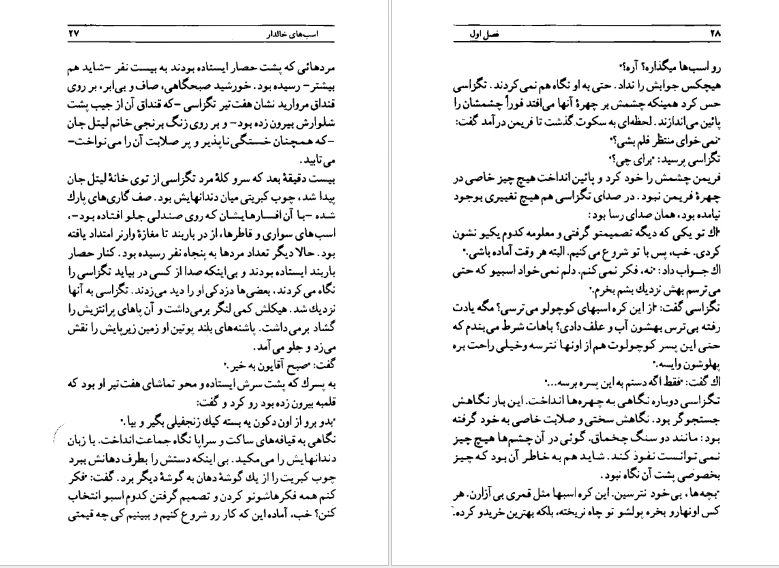 اسب‌های خالدار ۲۷
مردهائی که پشت حصار ایستاده بودند به بیست نفر –شاید هم
بیشتر– رسیده بود. خورشید صبحگاهی، صاف و بی‌ابر، بر روی
قنداق مروارید نشان هفت تیر تگزاسی –که قنداق آن از جیب پشت
شلوارش بیرون زده بود– و بر روی زنگ برنجی خانم لیتل جان
–که همچنان خستگی ناپذیر و پر صلابت آن را می‌نواخت–
می‌تابید.
بیست دقیقهٔ بعد که سر و کلهٔ مرد تگزاسی از توی خانهٔ لیتل جان
پیدا شد، چوب کبریتی میان دندانهایش بود. صف گاری‌های پارك
شده –با آن افسارهایشان که روی صندلی جلو افتاده بود–،
اسب‌های سواری و قاطرها، از در باربند تا مغازهٔ وارنر امتداد یافته
بود. حالا دیگر تعداد مردها به پنجاه نفر رسیده بود. کنار حصار
باربند ایستاده بودند و بی‌اینکه صدا از کسی در بیاید تگزاسی را
نگاه می‌کردند، بعضی‌ها دزدکی او را دید می‌زدند. تگزاسی به آنها
نزدیك شد. هیکلش کمی لنگر برمی‌داشت و آن پاهای پرانتزیش را
گشاد برمی‌داشت. پاشنه‌های بلند پوتین او زمین زیرپایش را نقش
می‌زد و جلو می‌آمد.
گفت: «صبح آقایون به خیر.»
به پسرك که پشت سرش ایستاده و محو تماشای هفت‌تیر او بود که
قلمبه بیرون زده بود رو کرد و گفت:
«بدو برو از اون دکون یه بسته کیك زنجفیلی بگیر و بیا.»
نگاهی به قیافه‌های ساکت و سراپا نگاه جماعت انداخت. با زبان
دندانهایش را می‌مکید. بی اینکه دستش را بطرف دهانش ببرد
چوب کبریت را از یك گوشهٔ دهان به گوشهٔ دیگر برد. گفت: «فکر
کنم همه فکرهاشونو کردن و تصمیم گرفتن کدوم اسبو انتخاب
کنن؟ خب، آماده این که کار رو شروع کنیم و ببینیم کی چه قیمتی
۲۸ فصل اول
رو اسب‌ها میگذاره؟ آره؟»
هیچکس جوابش را نداد. حتی به او نگاه هم نمی‌کردند. تگزاسی
حس کرد همینکه چشمش بر چهرهٔ آنها می‌افتد فوراً چشمشان را
پائین می‌اندازند. لحظه‌ای به سکوت گذشت تا فریمن درآمد گفت:
«نمی‌خوای منتظر فلم بشی؟»
تگزاسی پرسید: «برای چی؟»
فریمن چشمش را خود کرد و پائین انداخت هیچ چیز خاصی در
چهرهٔ فریمن نبود. در صدای تگزاسی هم هیچ تغییری بوجود
نیامده بود، همان صدای رسا بود:
«اك تو یکی که دیگه تصمیمتو گرفتی و معلومه کدوم یکیو نشون
کردی. خب، پس با تو شروع می‌کنیم. البته هر وقت آماده باشی.»
اك جواب داد: «نه، فکر نمی‌کنم. دلم نمی‌خواد اسبیو که حتی
می‌ترسم بهش نزدیك بشم بخرم.»
تگزاسی گفت: «از این کره اسبهای کوچولو می‌ترسی؟ مگه یادت
رفته بی‌ترس بهشون آب و علف دادی؟ باهات شرط می‌بندم که
حتی این پسر کوچولوت هم از اونها نترسه و خیلی راحت بره
پهلوشون وایسه.»
اك گفت: «فقط اگه دستم به این پسره برسه...»
تگزاسی دوباره نگاهی به چهره‌ها انداخت. این بار نگاهش
جستجوگر بود. نگاهش سختی و صلابت خاصی به خود گرفته
بود: مانند دو سنگ چخماق. گوئی در آن چشم‌ها هیچ چیز
نمی‌توانست نفوذ کند. شاید هم به خاطر آن بود که چیز
بخصوصی پشت آن نگاه نبود.
«بچه‌ها، بی‌خود نترسین. این کره اسبها مثل قمری بی‌آزارن. هر
کس اونهارو بخره پولشو تو چاه نریخته، بلکه بهترین خریدو کرده.